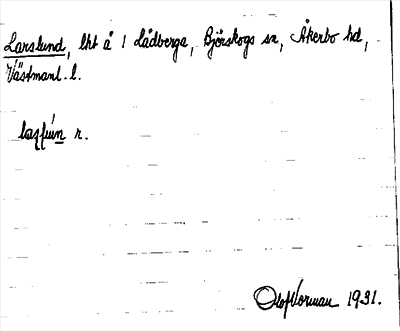 Larslund, lht å 1 Lådberga, Björskogs sn, Åkerbo hd,
Västmanl. l.
r.
Olof Norman 1931.